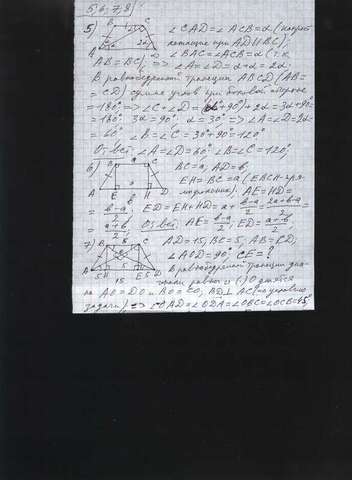 5,6,7,8)
5) ∠CAD=∠ACB=α (накрест
лежащие при AD∥BC),
∠BAC=∠ACB=α (т.к.
AB=BC) => ∠A=∠D=α+α=2α.
В равнобедренной трапеции ABCD (AB=
=CD) сумма углов при боковой стороне
=180° => ∠C+∠D=(α+90°)+2α=3α+90°=
=180° 3α=90° α=30° => ∠A=∠D=2α=
=60° ∠B=∠C=30°+90°=120°
Ответ ∠A=∠D=60° ∠B=∠C=120°,
6) BC=a, AD=b,
EH=BC=a (EBCH-пря-
моугольник). AE=HD=
=(b-a)/2, ED=EH+HD=a+(b-a)/2=(2a+b-a)/2=
=(a+b)/2, Ответ AE=(b-a)/2, ED=(a+b)/2,
7) AD=15, BC=5, AB=CD,
∠AOD=90°, CE=?
В равнобедренной трапеции диа-
гонали равны и
AO=DO и BO=CO, BD⊥AC (по условию
задачи) => ∠OAD=∠ODA=∠OBC=∠OCB=45°,